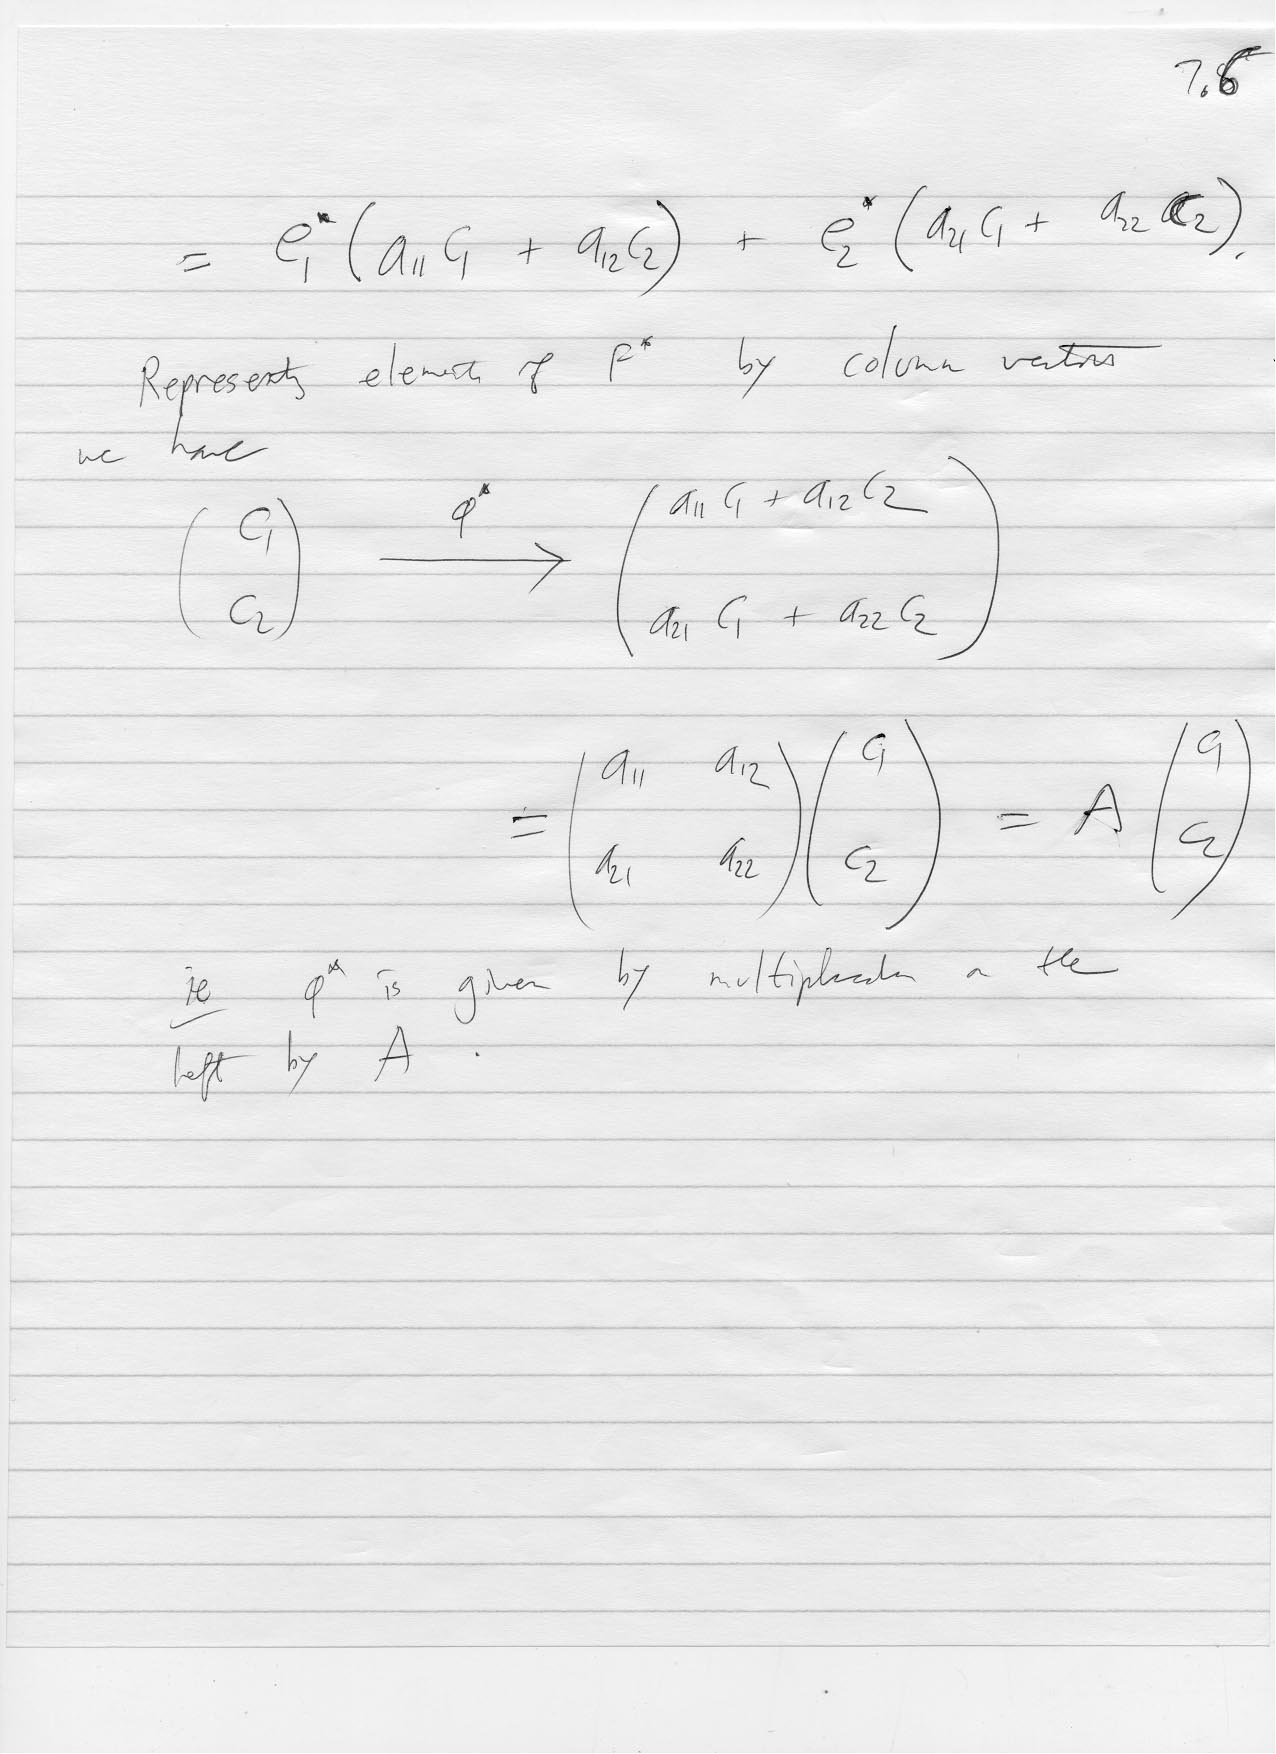 7.6
= e₁* (a₁₁ c₁ + a₁₂ c₂) + e₂* (a₂₁ c₁ + a₂₂ c₂).
Representing elements of F* by column vectors
we have
( c₁ ) φ* ⟶ ( a₁₁ c₁ + a₁₂ c₂ )
( c₂ ) ( a₂₁ c₁ + a₂₂ c₂ )
= ( a₁₁ a₁₂ ) ( c₁ ) = A ( c₁ )
( a₂₁ a₂₂ ) ( c₂ ) ( c₂ )
ie φ* is given by multiplication on the
left by A.